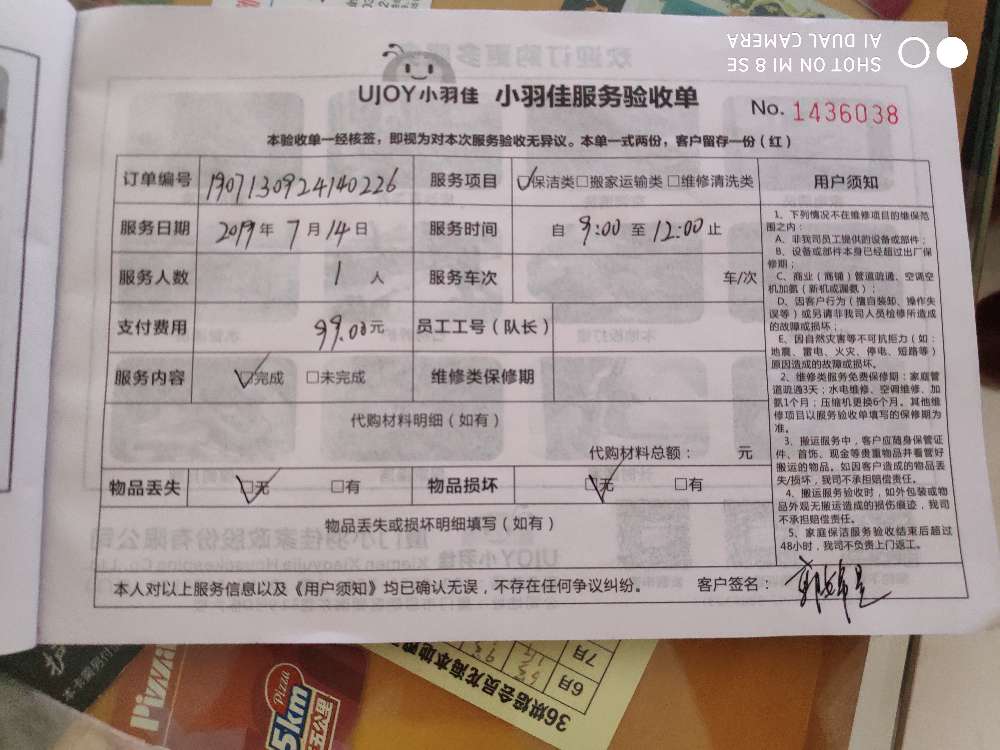 SHOT ON MI 8 SE
AI DUAL CAMERA
UJOY小羽佳 小羽佳服务验收单
No. 1436038
本验收单一经核签，即视为对本次服务验收无异议。本单一式两份，客户留存一份（红）
订单编号 1907130924140226 服务项目 ☑保洁类☐搬家运输类☐维修清洗类
服务日期 2019年7月14日 服务时间 自 9:00 至 12:00 止
服务人数 1 人 服务车次 车/次
支付费用 99.00元 员工工号（队长）
服务内容 ☑完成 ☐未完成 维修类保修期
代购材料明细（如有）
代购材料总额： 元
物品丢失 ☑无 ☐有 物品损坏 ☑无 ☐有
物品丢失或损坏明细填写（如有）
本人对以上服务信息以及《用户须知》均已确认无误，不存在任何争议纠纷。 客户签名：
用户须知
1、下列情况不在维修项目的维保范
围之内：
A、非我司员工提供的设备或部件；
B、设备或部件本身已经超过出厂保
修期；
C、商业（商铺）管道疏通、空调空
机加氨（新机或漏氨）；
D、因客户行为（擅自装卸、操作失
误等）或另请非我司人员检修所造成
的故障或损坏；
E、因自然灾害等不可抗拒力（如：
地震、雷电、火灾、停电、短路等）
原因造成的故障或损坏。
2、维修类服务免费保修期：家庭管
道疏通3天；水电维修、空调维修、加
氨1个月；压缩机更换6个月。其他维
修项目以服务验收单填写的保修期为
准。
3、搬运服务中，客户应随身保管证
件、首饰、现金等贵重物品并看管好
搬运的物品。如因客户造成的物品丢
失/损坏，我司不承担赔偿责任。
4、搬运服务验收时，如外包装或物
品外观无搬运造成的损伤痕迹，我司
不承担赔偿责任。
5、家庭保洁服务验收结束后超过
48小时，我司不负责上门返工。
Pizza
5km
五公里
36烘焙会员龙海本地
6月
7月